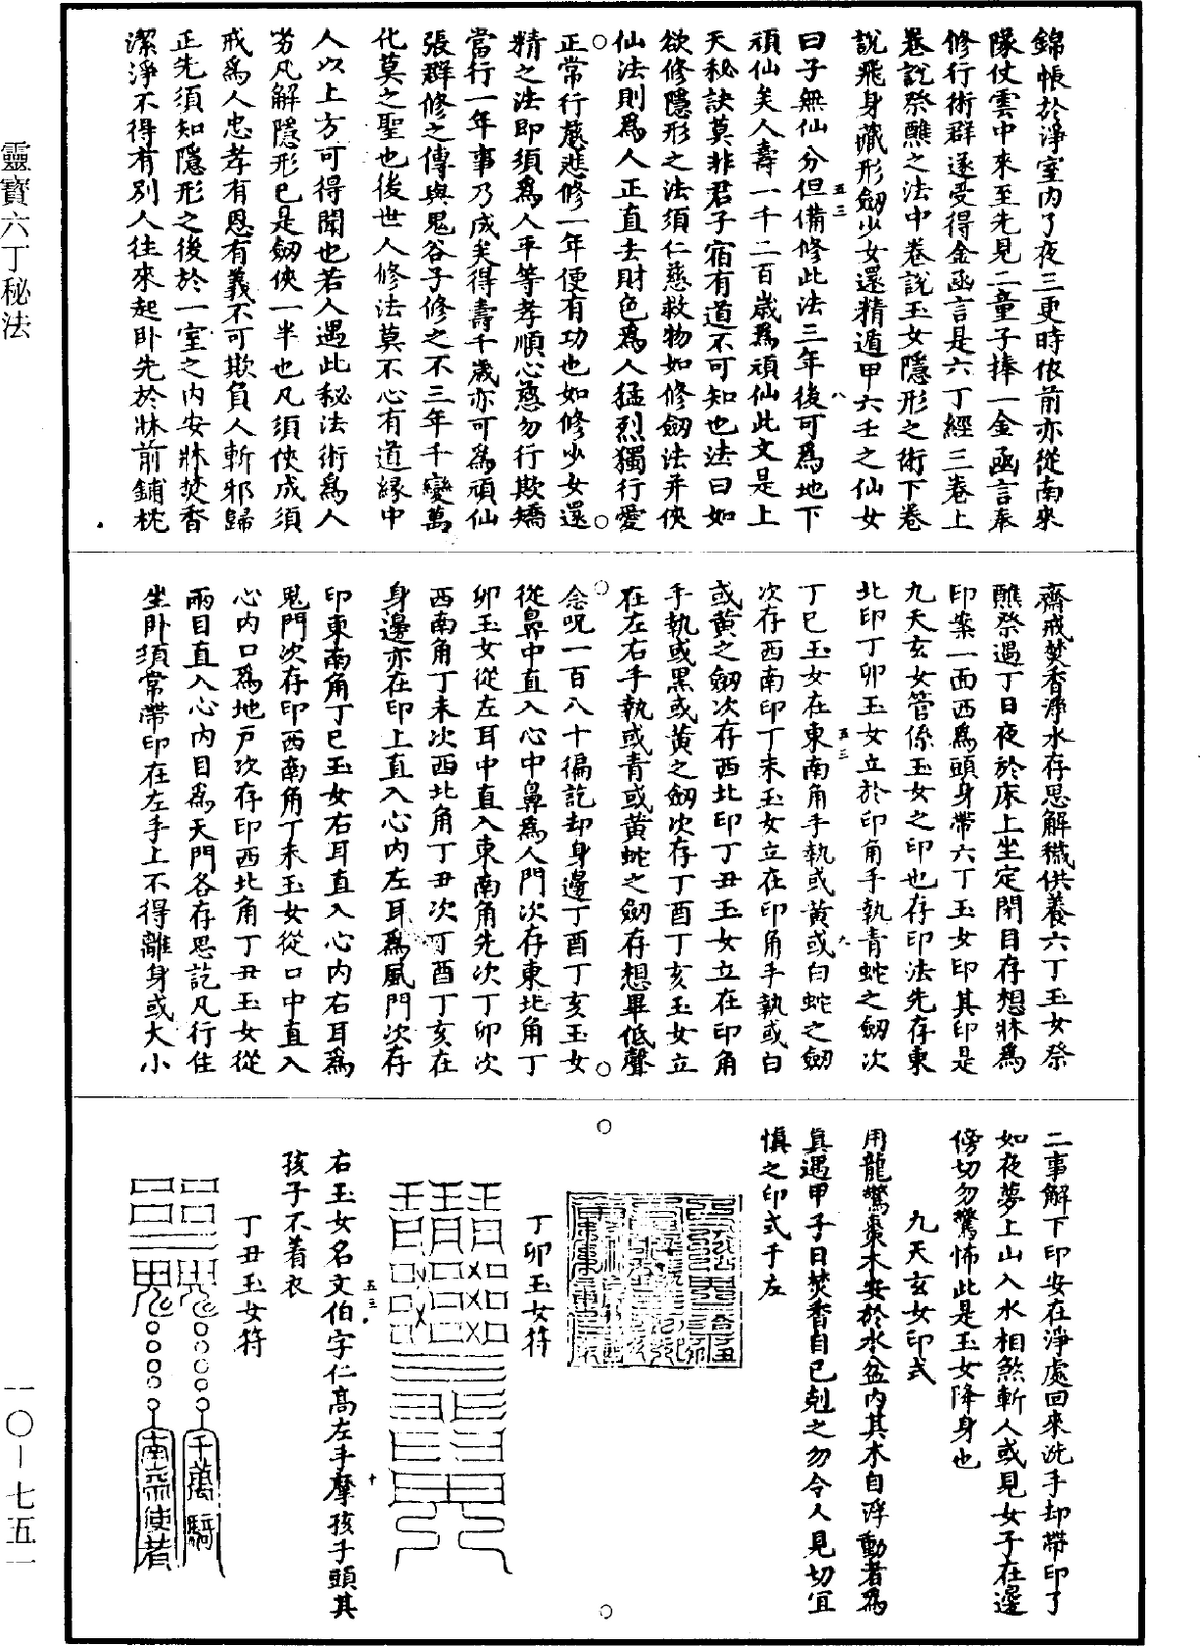 錦帳於淨室內了夜三更時依前亦從南來
隊仗雲中來至先見二童子捧一金函言奉
修行術群遂受得金函言是六丁經三卷上
卷說祭醮之法中卷說玉女隱形之術下卷
說飛身藏形劔少女還精遁甲六壬之仙女
曰子無仙分但備修此法三年後可爲地下
頑仙矣人壽一千二百歲爲頑仙此文是上
天秘訣莫非君子宿有道不可知也法曰如
欲修隱形之法須仁慈救物如修劔法并俠
仙法則爲人正直去財色爲人猛烈獨行愛
正常行慈悲修一年便有功也如修少女還
精之法即須爲人平等孝順心慈勿行欺矯
當行一年事乃成矣得壽千歲亦可爲頑仙
張群修之傳與鬼谷子修之不三年千變萬
化莫之聖也後世人修法莫不心有道緣中
人以上方可得聞也若人遇此秘法術爲人
劣凡解隱形已是劔俠一半也凡須俠成須
戒爲人忠孝有恩有義不可欺負人斬邪歸
正先須知隱形之後於一室之內安牀焚香
潔淨不得有別人往來起卧先於牀前鋪枕
齋戒焚香淨水存思解穢供養六丁玉女祭
醮祭遇丁日夜於床上坐定閉目存想牀爲
印案一面西爲頭身帶六丁玉女印其印是
九天玄女管係玉女之印也存印法先存東
北印丁卯玉女立於印角手執青蛇之劔次
丁巳玉女在東南角手執或黃或白蛇之劔
次存西南印丁未玉女立在印角手執或白
或黃之劔次存西北印丁丑玉女立在印角
手執或黑或黃之劔次存丁酉丁亥玉女立
在左右手執或青或黃蛇之劔存想畢低聲
念呪一百八十徧訖却身邊丁酉丁亥玉女
從鼻中直入心中鼻爲人門次存東北角丁
卯玉女從左耳中直入東南角先次丁卯次
西南角丁未次西北角丁丑次丁酉丁亥在
身邊亦在印上直入心內左耳爲風門次存
印東南角丁巳玉女右耳直入心內右耳爲
鬼門次存印西南角丁未玉女從口中直入
心內口爲地戸次存印西北角丁丑玉女從
兩目直入心內目爲天門各存思訖凡行住
坐卧須常帶印在左手上不得離身或大小
二事解下印安在淨處回來洗手却帶印了
如夜夢上山入水相煞斬人或見女子在邊
傍切勿驚怖此是玉女降身也
九天玄女印式
用龍驚棗木安於水盆內其木自浮動者爲
眞遇甲子日焚香自已剋之勿令人見切宜
愼之印式于左
丁卯玉女符
右玉女名文伯字仁高左手摩孩子頭其
孩子不着衣
丁丑玉女符
千萬騎
南帝使者
五三 八
五三 九
五三 十
靈寶六丁秘法
一〇—七五一